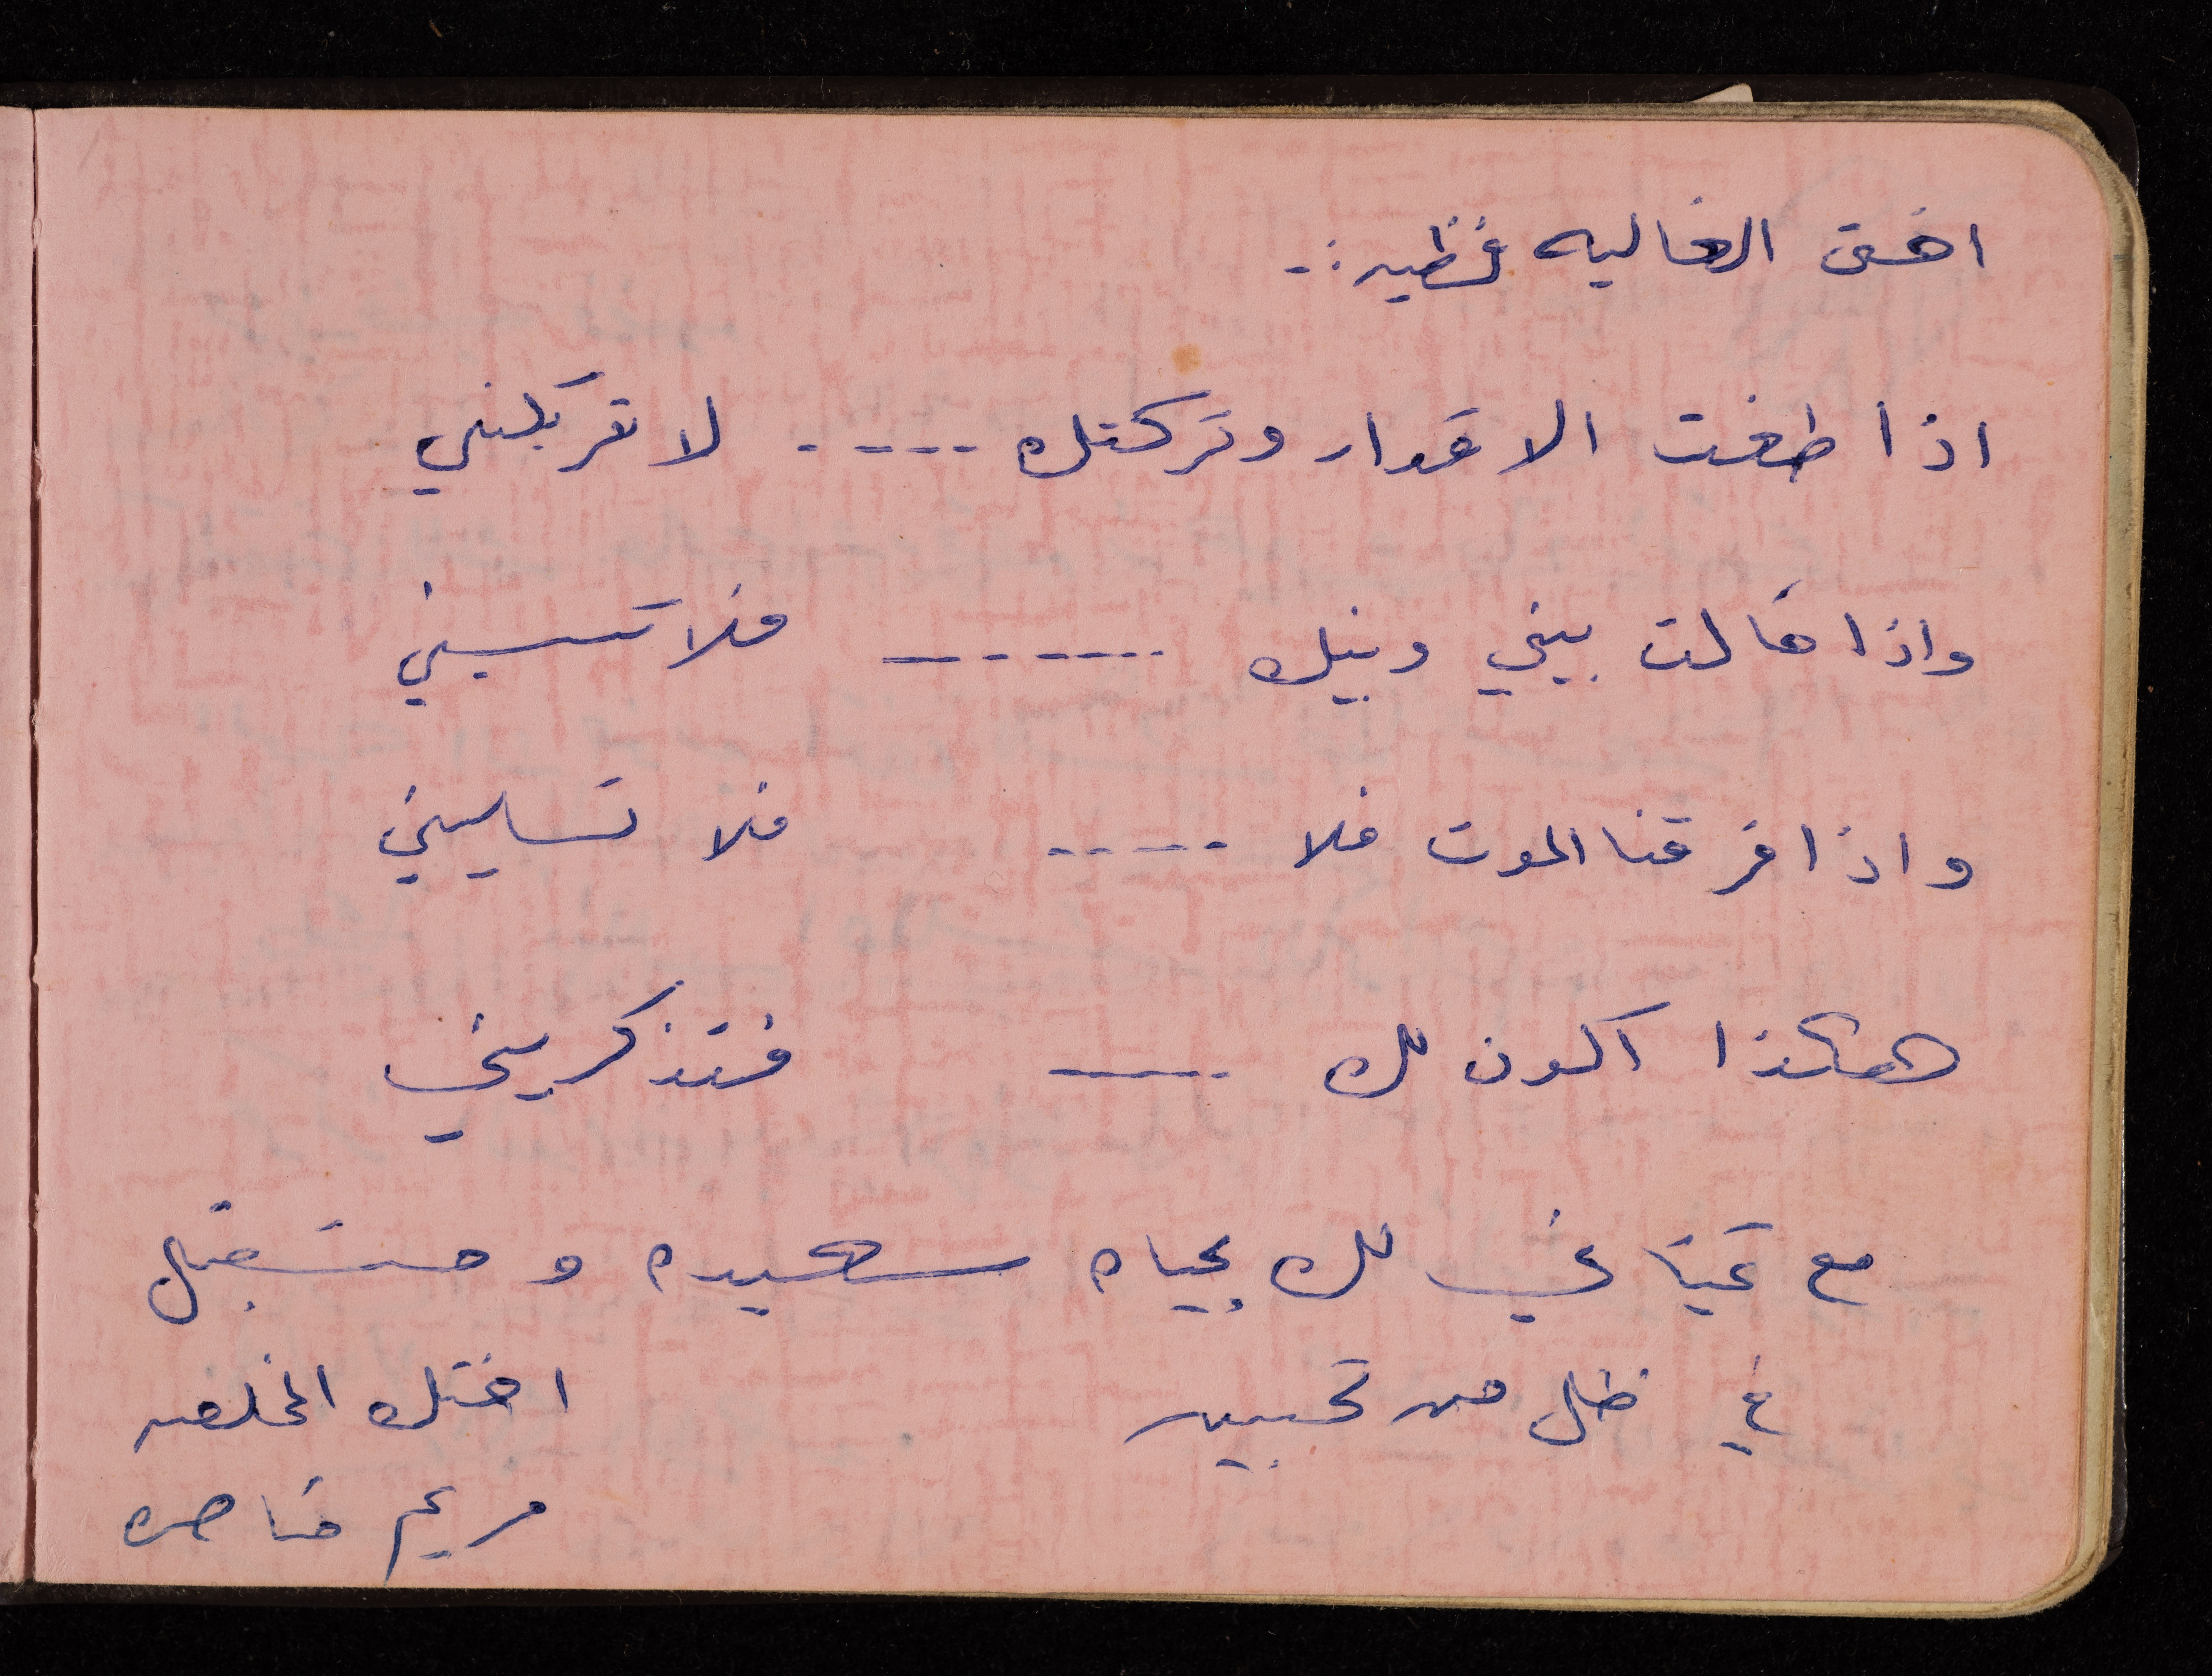 اختي الغاليه فطيم :-
اذا طغت الاقدار وتركتك ----- لا تتركيني
واذا حالت بيني وبينك ------- فلا تنسيني
واذا فرقنا الموت فلا ----- فلا تسليني
هكذا اكون لك ---- فتذكريني
مع تمنياتي لك بحياه سعيده ومستقبل
في ظل من تحبين اختك المخلصه
مريم